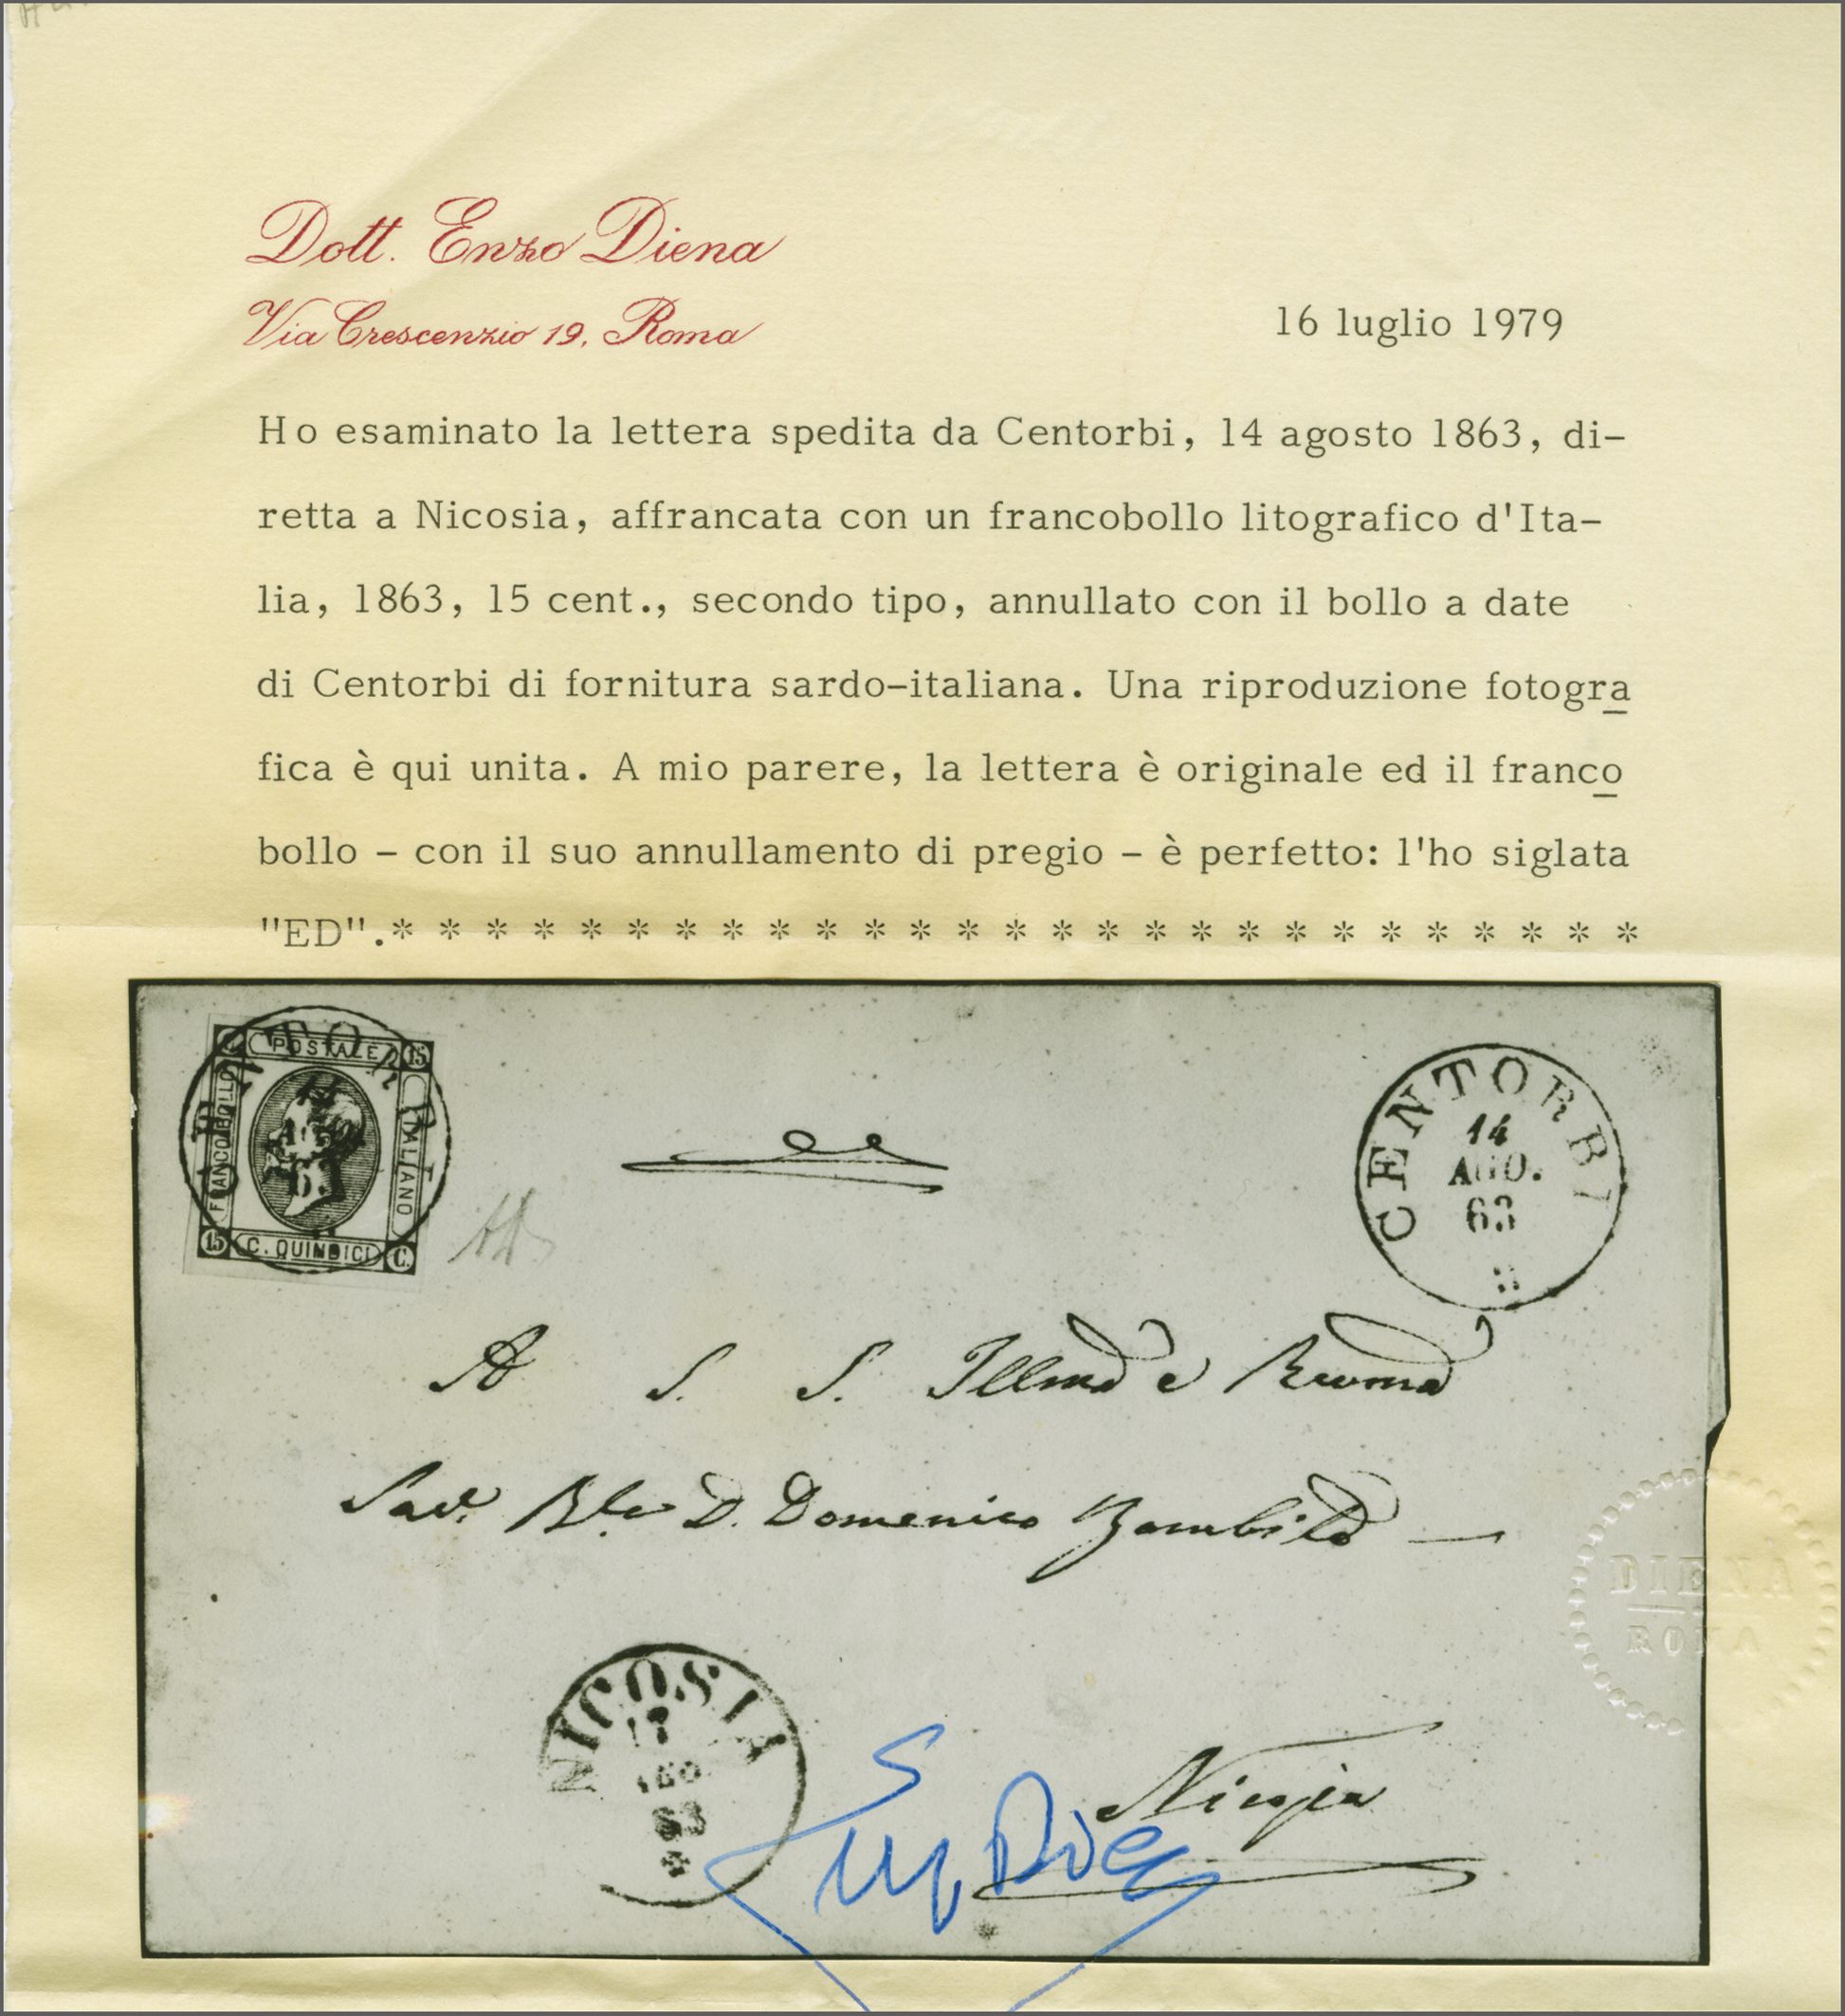 Dott. Enzo Diena
Via Crescenzio 19, Roma
16 luglio 1979
Ho esaminato la lettera spedita da Centorbi, 14 agosto 1863, di-
retta a Nicosia, affrancata con un francobollo litografico d'Ita-
lia, 1863, 15 cent., secondo tipo, annullato con il bollo a date
di Centorbi di fornitura sardo-italiana. Una riproduzione fotogra
fica è qui unita. A mio parere, la lettera è originale ed il franco
bollo - con il suo annullamento di pregio - è perfetto: l'ho siglata
"ED".* * * * * * * * * * * * * * * * * * * * * * * * * * *
POSTALE 15
FRANCOBOLLO
ITALIANO
15 C. QUINDICI C.
CENTORBI
14
AGO.
63
A S. S. Illma e Revma
D. Domenico
NICOSIA
17
AGO
63
Nicosia
DIENA
ROMA